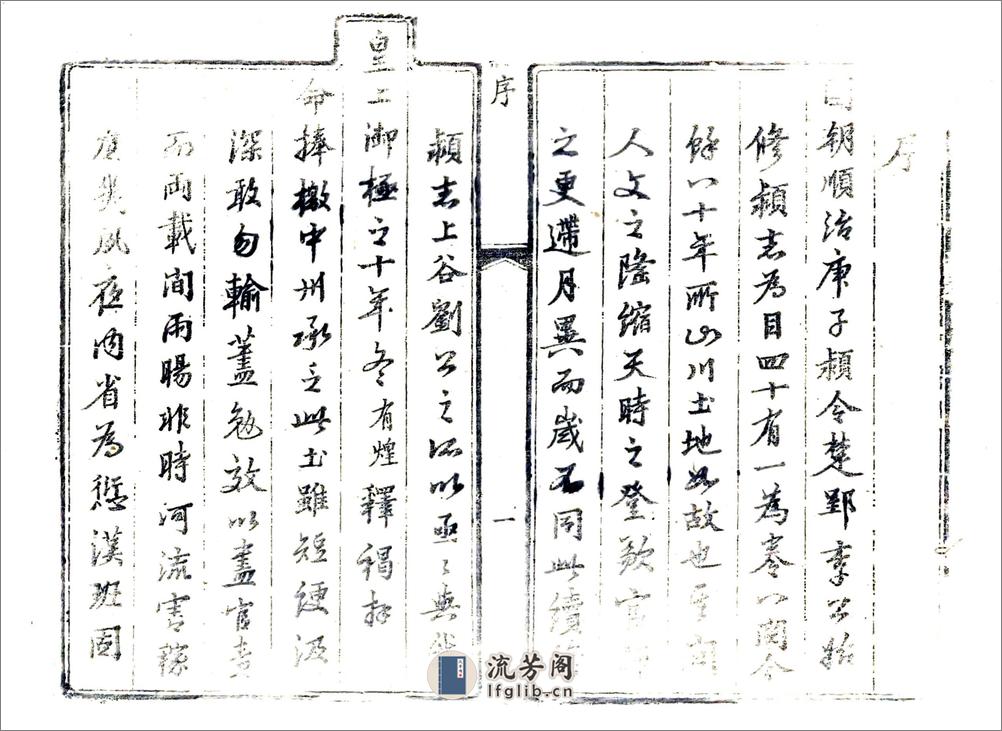 序
國朝順治庚子潁令楚郢李公始
修潁志為目四十有一為卷八閱今
餘八十年所山川土地如故也至
人文之隆縮天時之登歉官
之更遷月異而歲不同此續
序
一
潁志上谷劉公之所以亟々與
皇上御極之十年冬有煌釋褐拜
命捧檄中州承乏此土雖短綆汲
深敢勿輸蓋勉效以盡官責
而兩載間雨暘非時河流害稼
夙夜內省為愆漢班固
流芳阁
lfglib.cn